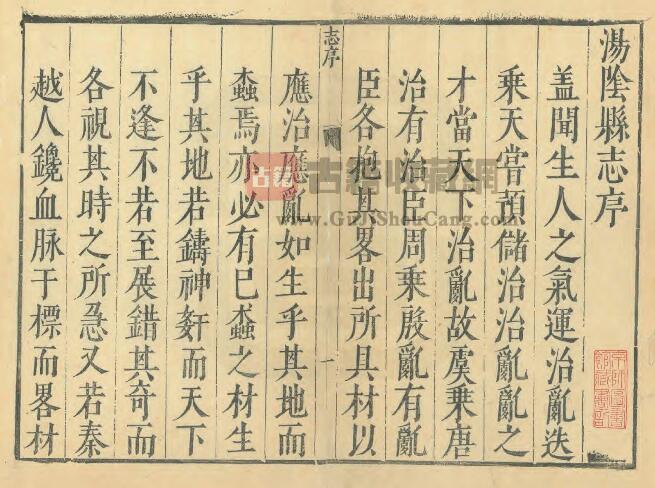 湯陰縣志序
蓋聞生人之氣運治亂迭
乘天嘗預儲治治亂亂之
才當天下治亂故虞乘唐
治有治臣周乘殷亂有亂
臣各抱其畧出所具材以
志序
一
應治應亂如生乎其地而
螙焉亦必有已螙之材生
乎其地若鑄神姧而天下
不逢不若至展錯其奇而
各視其時之所急又若秦
越人鑱血脉于標而畧材
古籍
古籍收藏網
www.GuJiShouCang.com